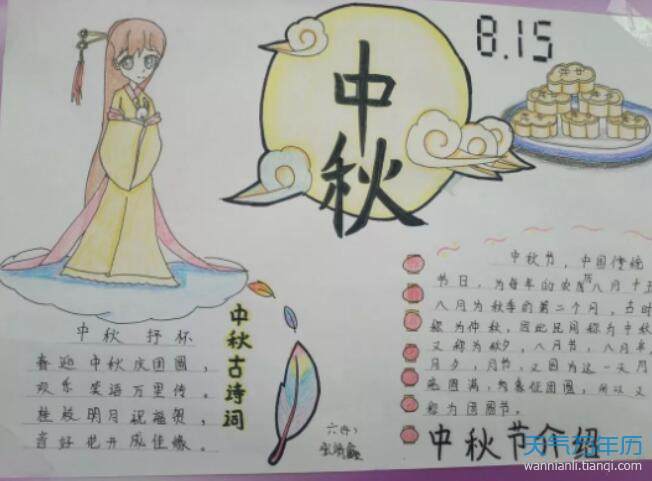 中秋
8.15
中秋 抒怀
喜迎中秋庆团圆，
欢乐笑语万里传。
桂殿明月祝福贺，
百好花开成佳缘。
中秋古诗词
中秋节，中国传统
节日，为每年的农历八月十五
八月为秋季的第二个月，古时
称为仲秋，因此民间称为中秋
又称为秋夕，八月节，八月半
月夕，月节，又因为这一天月
亮圆满，象征团圆，所以又
称为团圆节。
中秋节介绍
天气万年历
wannianli.tianqi.com